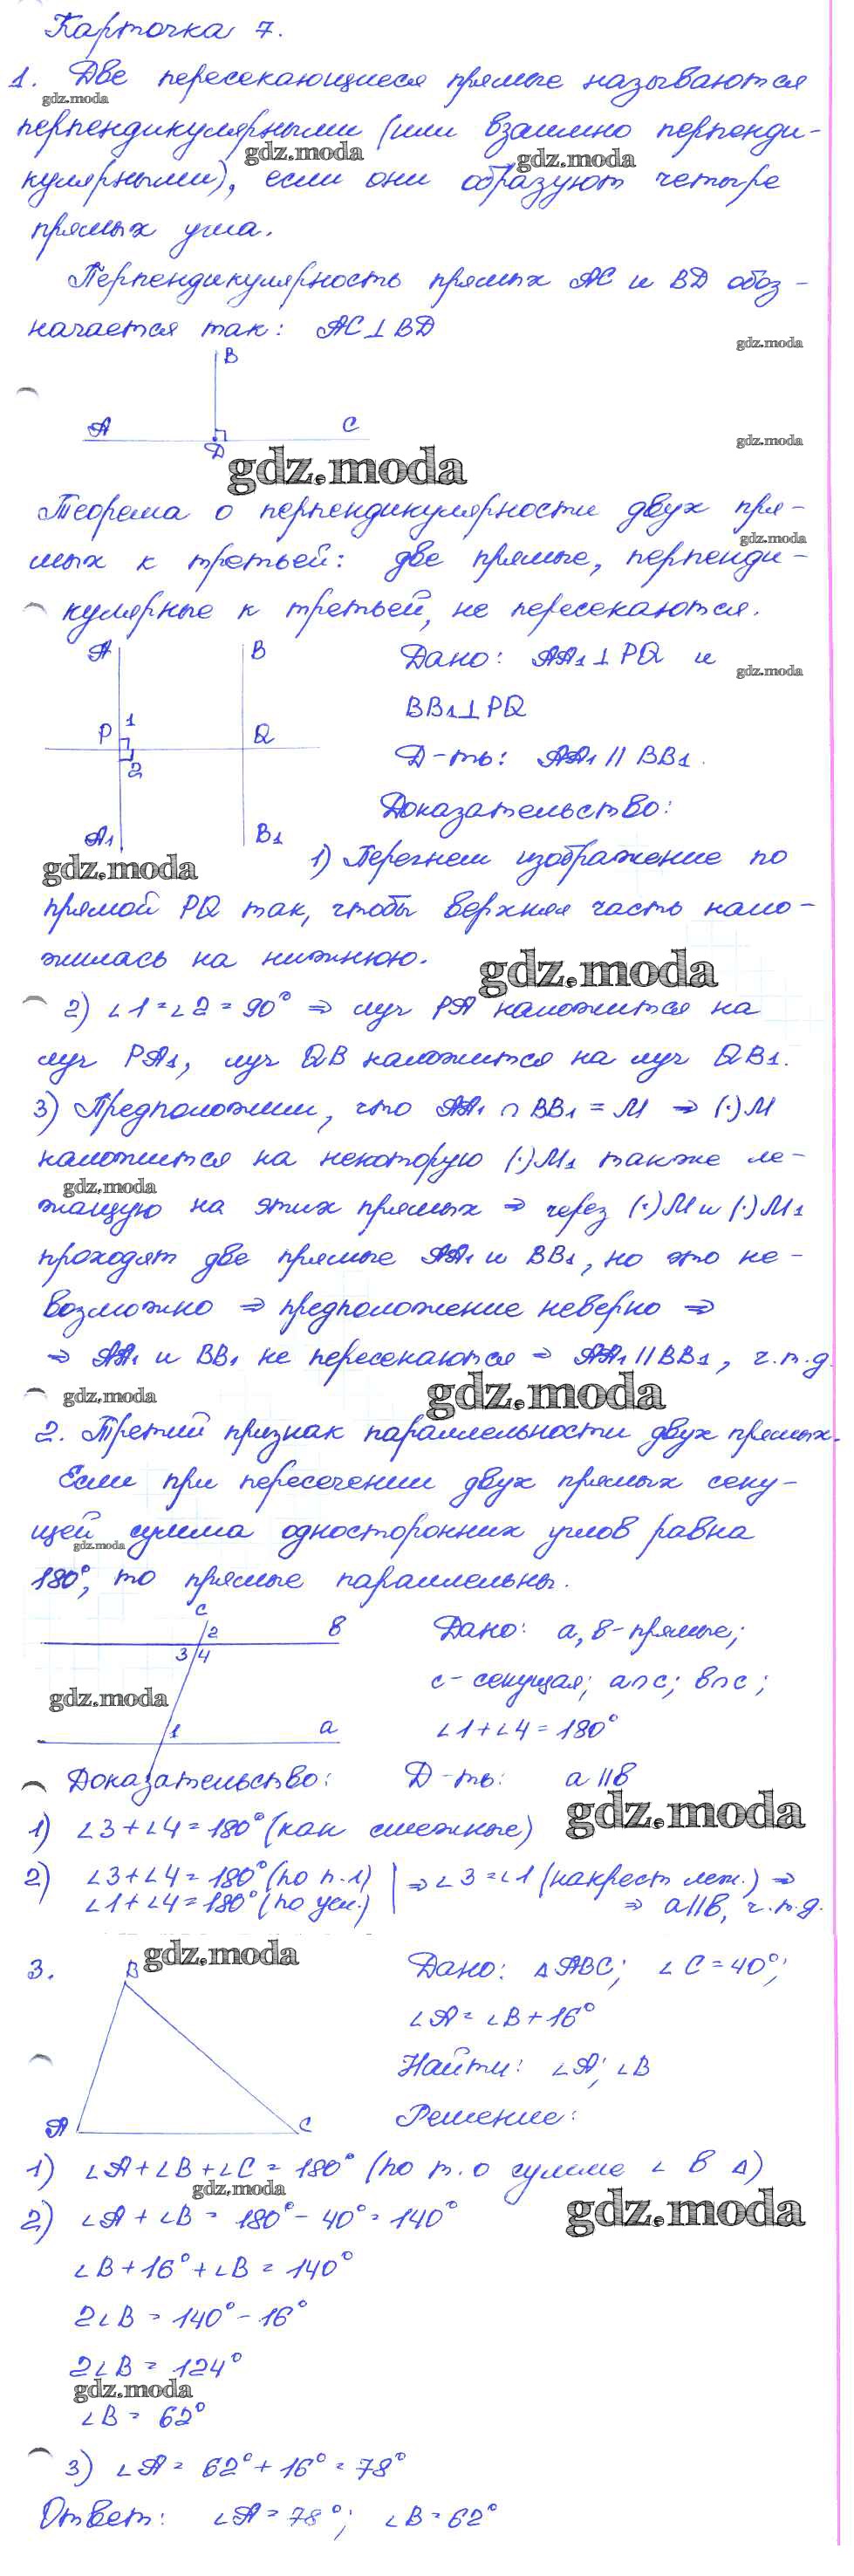 Карточка 7.
1. Две пересекающиеся прямые называются
gdz.moda
перпендикулярными (или взаимно перпенди-
gdz.moda gdz.moda
кулярными), если они образуют четыре
прямых угла.
Перпендикулярность прямых AC и BD обоз-
начается так: AC⊥BD
gdz.moda
B
A C
D
gdz.moda
gdz.moda
Теорема о перпендикулярности двух пря-
gdz.moda
мых к третьей: две прямые, перпенди-
кулярные к третьей, не пересекаются.
A B
P 1 Q
2
A1 B1
Дано: AA1⊥PQ и
gdz.moda
BB1⊥PQ
Д-ть: AA1 || BB1.
Доказательство:
gdz.moda
1) Перегнем изображение по
прямой PQ так, чтобы верхняя часть нало-
жилась на нижнюю.
gdz.moda
2) ∠1=∠2=90° ⇒ луч PA наложится на
луч PA1, луч QB наложится на луч QB1.
3) Предположим, что AA1 ∩ BB1 = M ⇒ (·)M
наложится на некоторую (·)M1 также ле-
gdz.moda
жащую на этих прямых ⇒ через (·)M и (·)M1
проходят две прямые AA1 и BB1, но это не-
возможно ⇒ предположение неверно ⇒
⇒ AA1 и BB1 не пересекаются ⇒ AA1||BB1, ч.т.д.
gdz.moda gdz.moda
2. Третий признак параллельности двух прямых.
Если при пересечении двух прямых секу-
щей сумма односторонних углов равна
gdz.moda
180°, то прямые параллельны.
c
2 в
3 4
1 a
gdz.moda
Дано: a, в-прямые;
c- секущая; a∩c; в∩c;
∠1+∠4=180°
Д-ть: a||в
Доказательство:
gdz.moda
1) ∠3+∠4=180° (как смежные)
2) ∠3+∠4=180° (по п.1) | ⇒ ∠3=∠1 (накрест леж.) ⇒
∠1+∠4=180° (по усл.) ⇒ a||в, ч.т.д.
gdz.moda
3. B
A C
Дано: ΔABC; ∠C=40°;
∠A=∠B+16°
Найти: ∠A; ∠B
Решение:
1) ∠A+∠B+∠C=180° (по т. о сумме ∠ в Δ)
gdz.moda gdz.moda
2) ∠A+∠B=180°-40°=140°
∠B+16°+∠B=140°
2∠B=140°-16°
2∠B=124°
gdz.moda
∠B=62°
3) ∠A=62°+16°=78°
Ответ: ∠A=78°; ∠B=62°